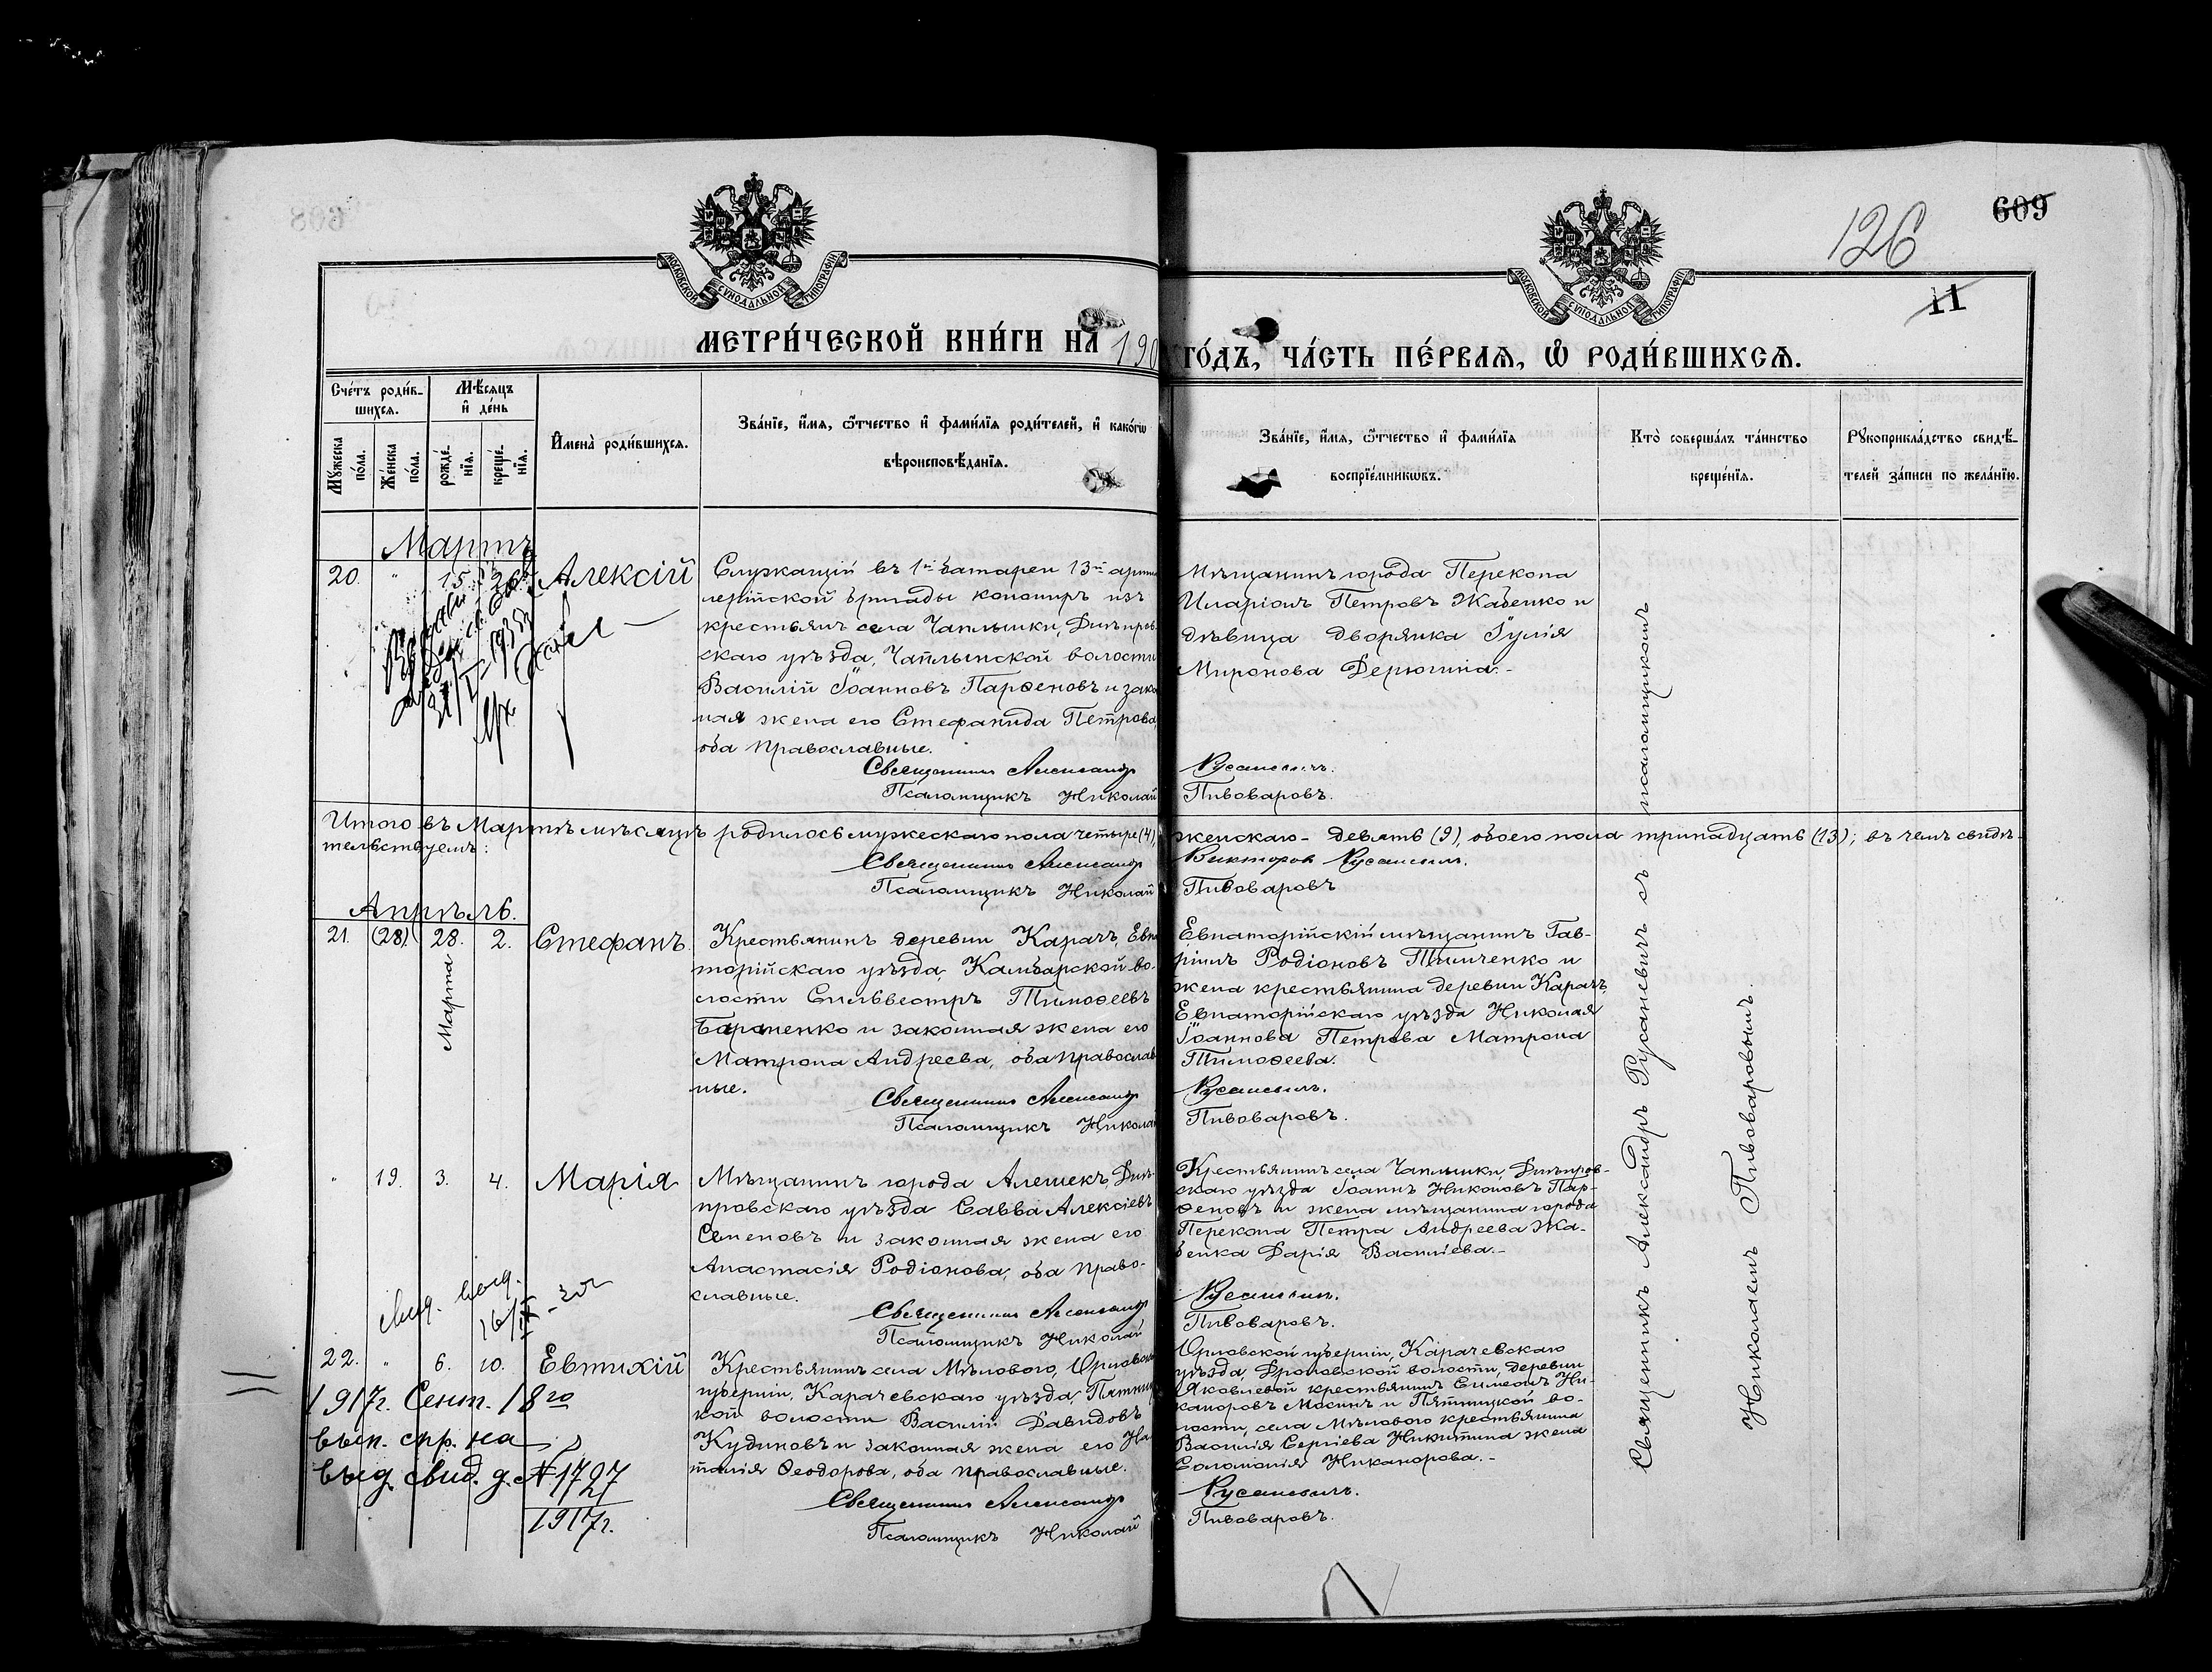 608
126
609
11
МОСКОВСКОЙ СѴНОДАЛЬНОЙ ТИПОГРАФІИ
МОСКОВСКОЙ СѴНОДАЛЬНОЙ ТИПОГРАФІИ
МЕТРИ́ЧЕСКОЙ КНИ́ГИ НА 190 ГО́ДЪ, ЧА́СТЬ ПЕ́РВАЯ, Ѿ РОДИ́ВШИХСѦ.
Сче́тъ роди́в-
шихсѧ.
Мѣ́сѧцъ
и҆ де́нь
Мꙋжеска
по́ла.
Же́нска
по́ла.
рожде́-
нїѧ.
креще́-
нїѧ.
И҆мена̀ роди́вшихсѧ.
Зва́нїе, и҆́мѧ, ѻ҆́тчество и҆ фами́лїѧ роди́телей, и҆ како́гѡ
вѣроисповѣ́данїѧ.
Зва́нїе, и҆́мѧ, ѻ҆́тчество и҆ фами́лїѧ
воспрїе́мникѡвъ.
Кто̀ соверша́лъ та́инство
креще́нїѧ.
Рꙋкоприкла́дство свидѣ́-
телей за́писи по жела́нїю.
Мартъ
20. " 15. 26. Алексій
Служащій въ 1й батареи 13й артил
лерійской бригады кономиръ изъ
крестьянъ села Чаплынки, Днѣпров-
скаго уѣзда, Чаплынской волости
Василій Іоанновъ Парѳеновъ и зако
ная жена его Стефанида Петрова,
оба православные.
Священникъ Александр
Псаломщикъ Николай
Мѣщанинъ города Перекопа
Иларіонъ Петровъ Жабенко и
дѣвица дворянка Іулія
Миронова Дерюгина.-
Русаневичъ.
Пивоваровъ.
Итого въ Мартѣ мѣсяцѣ родилось мужескаго пола четыре (4), женскаго - девять (9), обоего пола тринадцать (13); въ чемъ свидѣ-
тельствуемъ:
Священникъ Александр Викторов Русаневичъ.
Псаломщикъ Николай Пивоваровъ
Апрѣль.
21. (28) 28. 2. Стефанъ.
Марта
Крестьянинъ деревни Карачъ, Евпа
торійскаго уѣзда, Камбарской во-
лости Сильвестръ Тимоѳеевъ
Бараненко и законная жена его
Матрона Андреева, оба православ
ные.
Священникъ Александр
Псаломщикъ Николай
Евпаторійскій мѣщанинъ Гав-
ріилъ Родіоновъ Тимченко и
жена крестьянина деревни Карачъ,
Евпаторійскаго уѣзда Николая
Іоаннова Петрова Матрона
Тимоѳеева.
Русаневичъ.
Пивоваровъ.
" 19. 3. 4. Марія
Мѣщанинъ города Алешекъ, Днѣ-
провскаго уѣзда Савва Алексіевъ
Семеновъ и законная жена его
Анастасія Родіонова, оба право-
славные.
Священникъ Александр
Псаломщикъ Николай
Крестьянинъ села Чаплынки, Днѣпров-
скаго уѣзда Іоаннъ Никоновъ Пар-
ѳеновъ и жена мѣщанина города
Перекопа Петра Андреева Жа-
бенка Дарія Василіева.-
Русаневичъ.
Пивоваровъ.
22. " 6. 10. Евтихій
1917г. Сент. 18го
вып. спр. на
выд. свид. д. № 1727
1917г.
Крестьянинъ села Мѣлового, Орловской
губерніи, Карачевскаго уѣзда, Пятниц
кой волости Василій Давидовъ
Кудиновъ и законная жена его На
талія Ѳеодорова, оба православные.
Священникъ Александр
Псаломщикъ Николай
Орловской губерніи, Карачевскаго
уѣзда, Дроновской волости, деревни
Яковлевой крестьянинъ Симеонъ Ни-
каноровъ Мосинъ и Пятницкой во-
лости, села Мѣлового крестьянина
Василія Сергіева Никитина жена
Соломонія Никанорова.-
Русаневичъ.
Пивоваровъ.
Священникъ Александръ Русаневичъ съ псаломщикомъ
Николаемъ Пивоваровымъ.